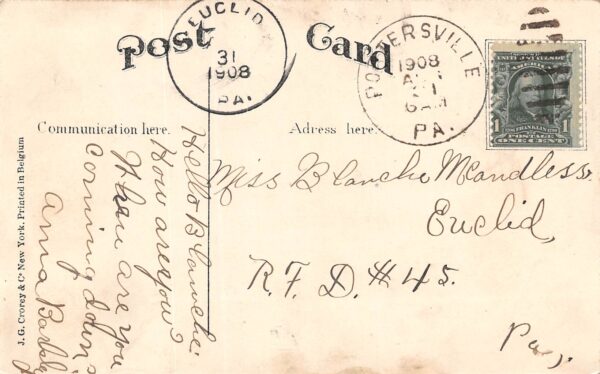 Post Card
EUCLID
31
1908
PA.
1908
AUG
6 AM
PA.
UNITED STATES OF
AMERICA
FRANKLIN
1 1
POSTAGE
ONE CENT
Communication here.
Adress here.
Hello Blanche.
How are you?
When are you
Coming down
Anna
Miss Blanche McCandless.
Euclid,
R.F.D. #45.
Pa,
J.G. Crorey & Co New York. Printed in Belgium